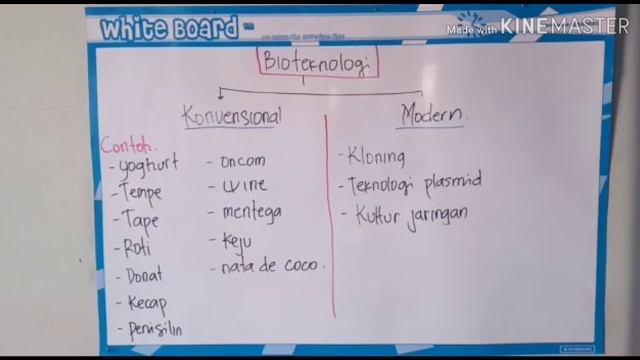 WHITE BOARD
Made with KINEMASTER
Bioteknologi
Konvensional
Contoh.
- yoghurt
- Tempe
- Tape
- Roti
- Donat
- Kecap
- penisilin
- oncom
- wine
- mentega
- Keju
- nata de coco.
Modern
- Kloning
- Teknologi plasmid
- Kultur jaringan